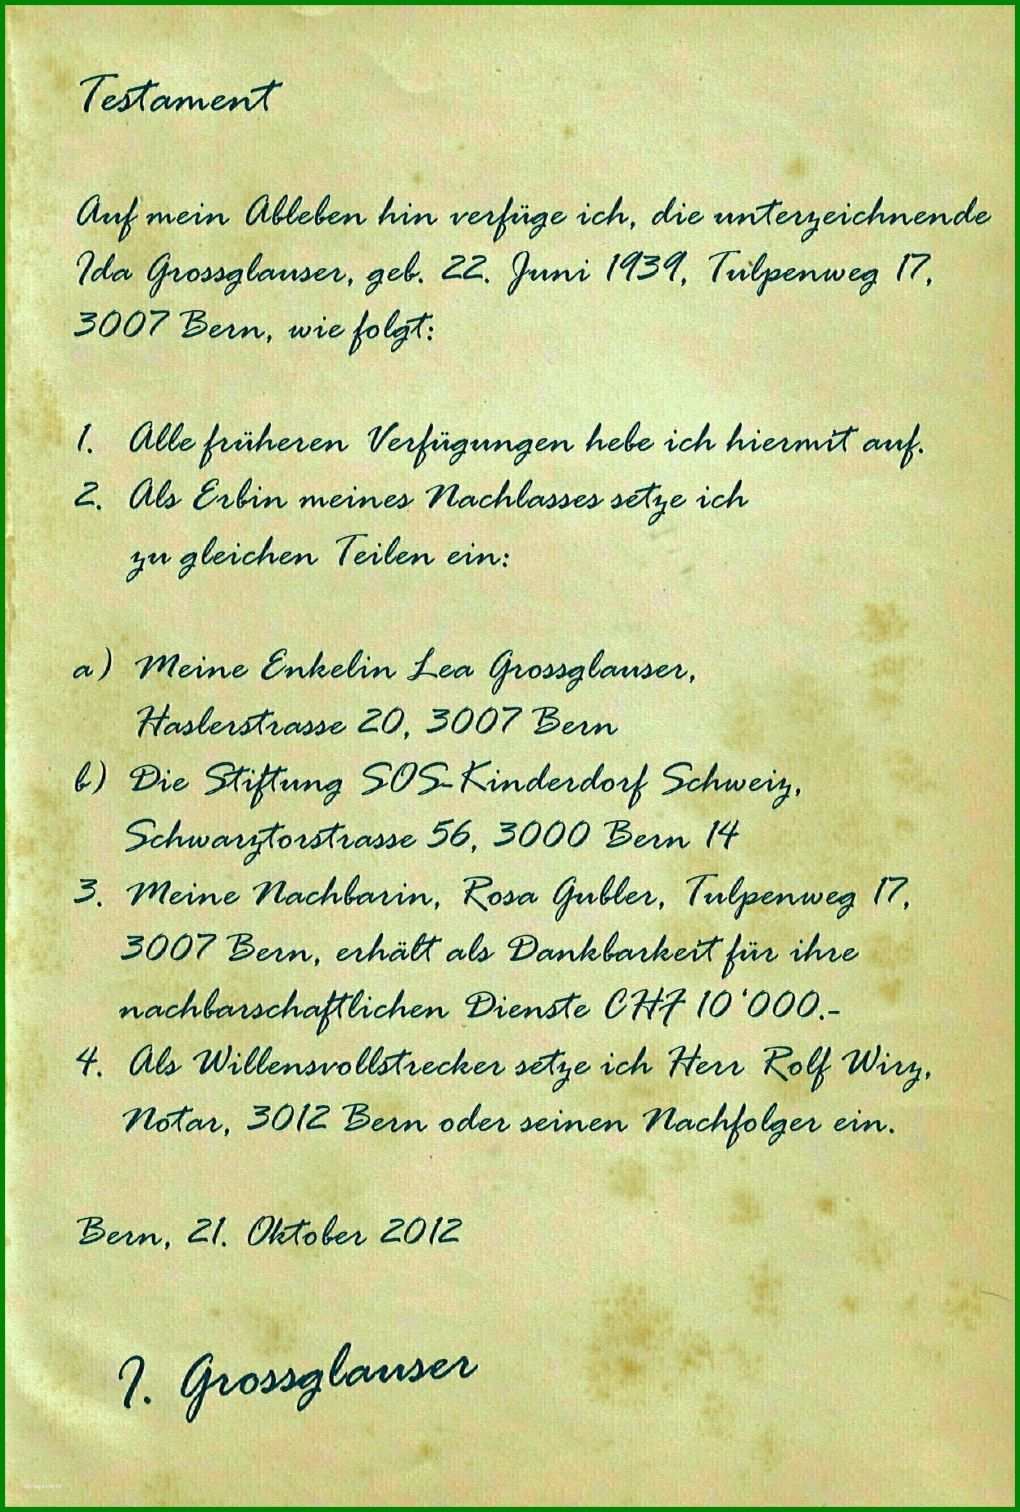 Testament
Auf mein Ableben hin verfüge ich, die unterzeichnende
Ida Grossglauser, geb. 22. Juni 1939, Tulpenweg 17,
3007 Bern, wie folgt:
1. Alle früheren Verfügungen hebe ich hiermit auf.
2. Als Erbin meines Nachlasses setze ich
zu gleichen Teilen ein:
a) Meine Enkelin Lea Grossglauser,
Haslerstrasse 20, 3007 Bern
b) Die Stiftung SOS-Kinderdorf Schweiz,
Schwarztorstrasse 56, 3000 Bern 14
3. Meine Nachbarin, Rosa Gubler, Tulpenweg 17,
3007 Bern, erhält als Dankbarkeit für ihre
nachbarschaftlichen Dienste CHF 10'000.-
4. Als Willensvollstrecker setze ich Herr Rolf Wirz,
Notar, 3012 Bern oder seinen Nachfolger ein.
Bern, 21. Oktober 2012
I. Grossglauser